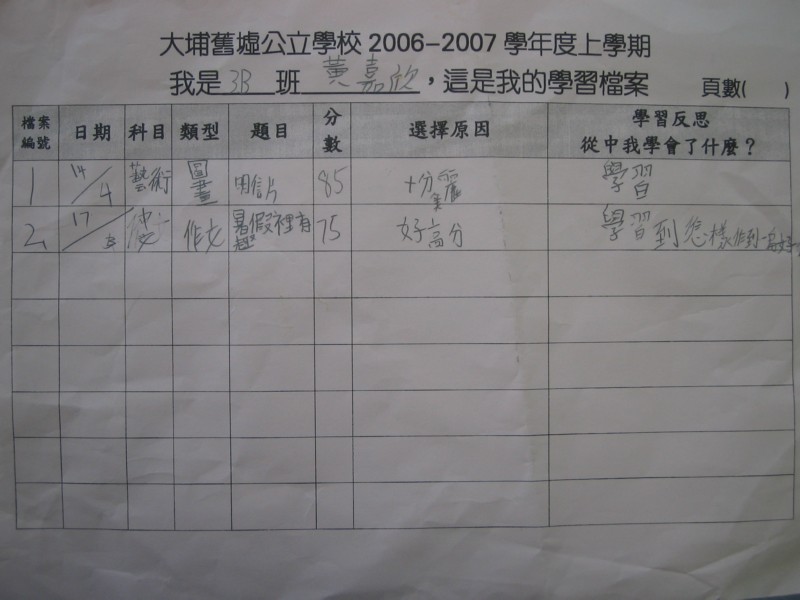 大埔舊墟公立學校 2006-2007 學年度上學期
我是 3B 班 黃嘉欣,這是我的學習檔案 頁數( )
檔案編號 日期 科目 類型 題目 分數 選擇原因 學習反思 從中我學會了什麼?
1 14/4 藝術 圖畫 明信片 85 十分美麗 學習
2 17/ 作文 暑假裡有趣 75 好高分 學習到怎樣作到一